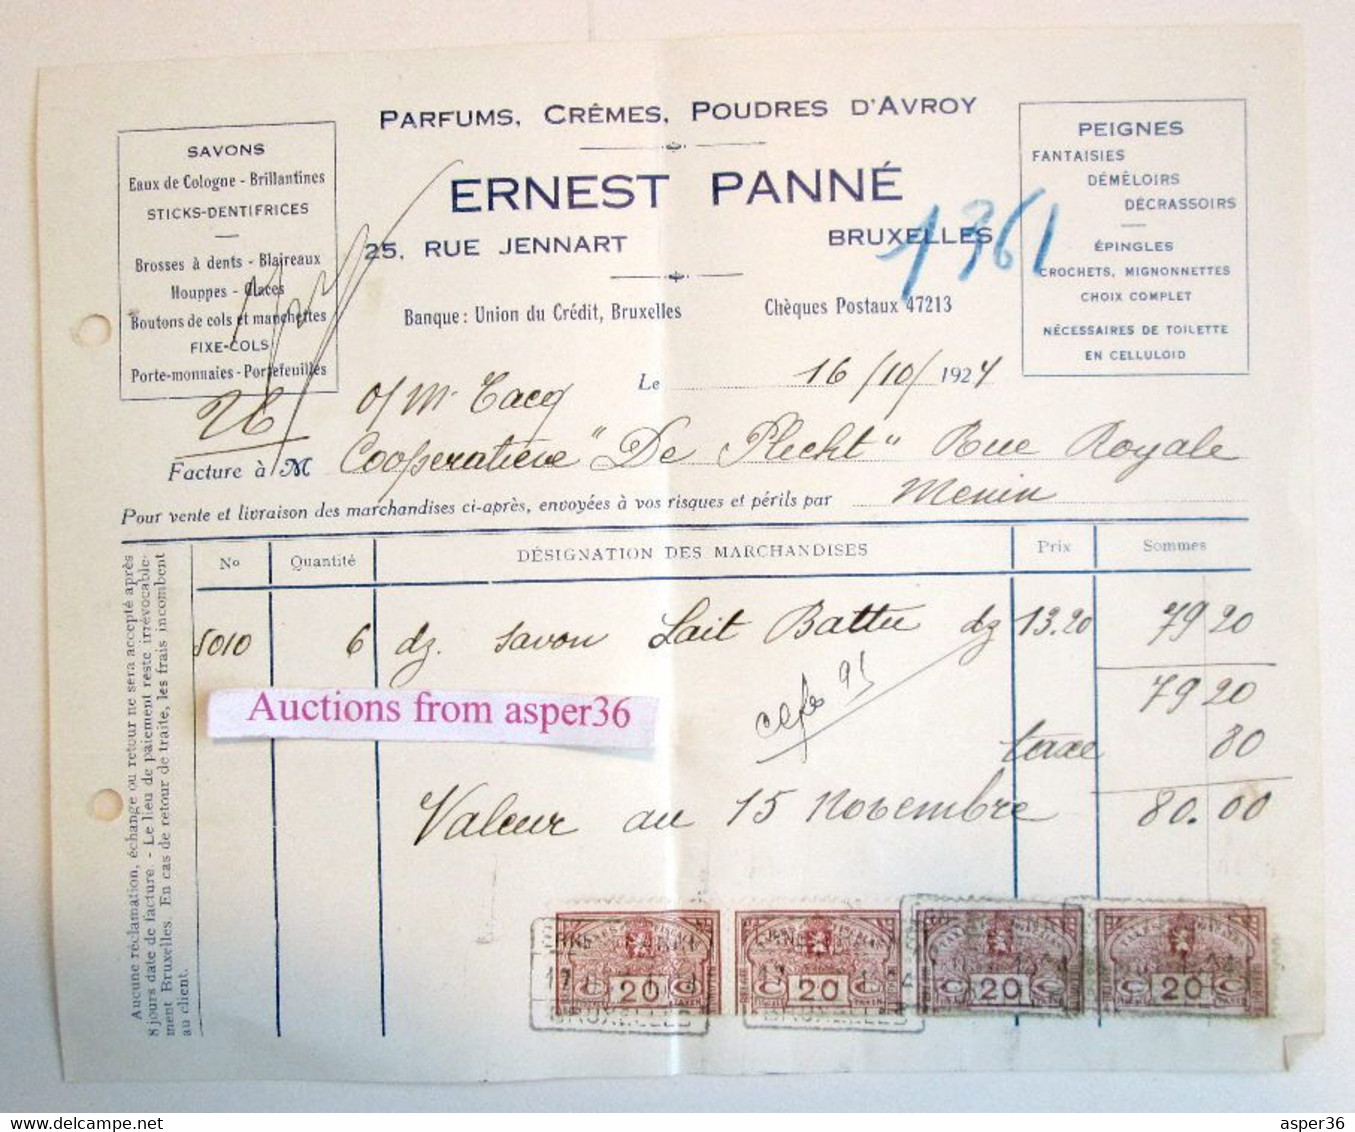 PARFUMS, CRÊMES, POUDRES D'AVROY
ERNEST PANNÉ
25, RUE JENNART BRUXELLES
1361
Banque : Union du Crédit, Bruxelles Chèques Postaux 47213
SAVONS
Eaux de Cologne - Brillantines
STICKS-DENTIFRICES
Brosses à dents - Blaireaux
Houppes - Glaces
Boutons de cols et manchettes
FIXE-COLS
Porte-monnaies - Portefeuilles
PEIGNES
FANTAISIES
DÉMÊLOIRS
DÉCRASSOIRS
ÉPINGLES
CROCHETS, MIGNONNETTES
CHOIX COMPLET
NÉCESSAIRES DE TOILETTE
EN CELLULOID
Le 16/10/1924
o/ Mr Tacq
Facture à M Cooperatieve "De Plicht" Rue Royale
Menin
Pour vente et livraison des marchandises ci-après, envoyées à vos risques et périls par
No Quantité DÉSIGNATION DES MARCHANDISES Prix Sommes
5010 6 dz. savon Lait Battu dz 13.20 79 20
79 20
taxe 80
Valeur au 15 Novembre 80.00
Auctions from asper36
Aucune réclamation, échange ou retour ne sera accepté après
8 jours date de facture. - Le lieu de paiement reste irrévocable-
ment Bruxelles. En cas de retour de traite, les frais incombent
au client.
20 20 20 20
BRUXELLES BRUXELLES
asper36